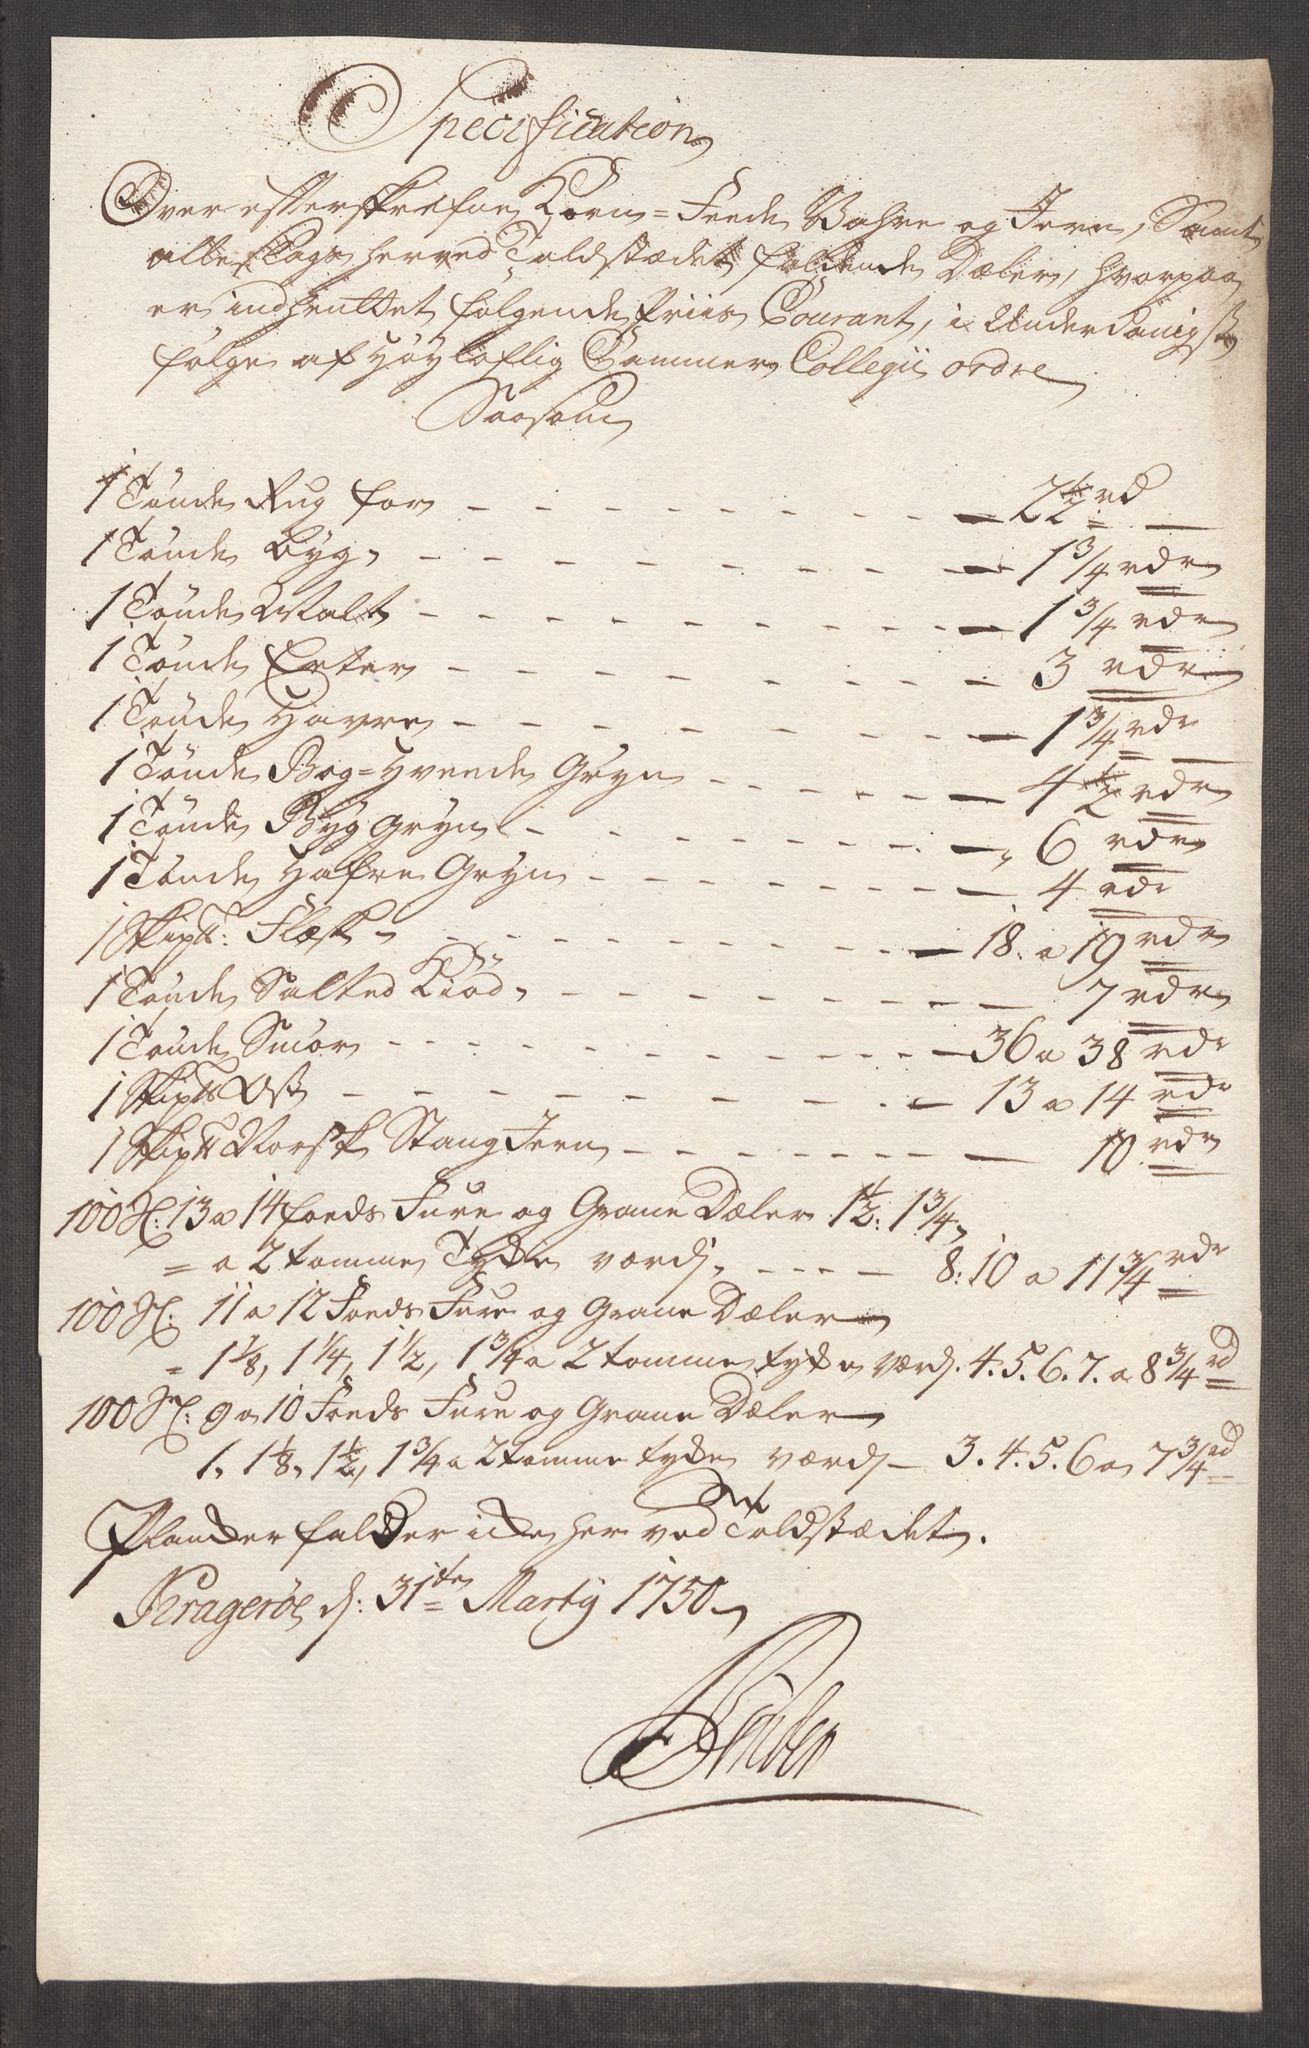 Specification
Over efterskrefne Korn = Feede Vahre og Jern, Samt
alle slags herved Toldstædet faldende Dæler, hvorpaa
er indhentet følgende Priis Courant, i Underdanigst
følge af Høyloflig Cammer Collegii ordre
Saasom
1 Tønde Rug for - - - - - - 2 1/2 rd
1 Tønde Byg, - - - - - - 1 3/4 rdr
1 Tønde Malt - - - - - - 1 3/4 rdr
1 Tønde Erter - - - - - - 3 rdr
1 Tønde Havre - - - - - - 1 3/4 rdr
1 Tønde Bog=Hveede Gryn - - - - 4 1/2 rdr
1 Tønde Byg Gryn - - - - - - 6 rdr
1 Tønde Hafre Gryn - - - - - - 4 rdr
1 Skip℔: Flæsk - - - - - - 18. a 19 rdr
1 Tønde Salted Kiød, - - - - - - 7 rdr
1 Tønde Smør - - - - - - 36 a 38 rdr
1 Skip℔ Ost - - - - - - 13 a 14 rdr
1 Skip℔ Norsk Stang Jern - - - - - - 10 rdr
100 St: 13 a 14 foeds Fure og Grane Dæler 1 1/2: 1 3/4,
= a 2 tomme Tyke værd, - - - - 8: 10 a 11 3/4 rdr
100 St: 11 a 12 Foeds Fure og Grane Dæler
= 1 1/8, 1 1/4, 1 1/2, 1 3/4 a 2 tomme tyke værd. 4. 5. 6. 7. a 8 3/4 rd
100 St: 9 a 10 Foeds Fure og Grane Dæler
1, 1 1/8, 1 1/2, 1 3/4 a 2 tomme tyke værd - 3. 4. 5. 6 a 7 3/4 rd
Planker falder icke her ved Toldstædet.
Kragerøe d: 31te Marty 1750